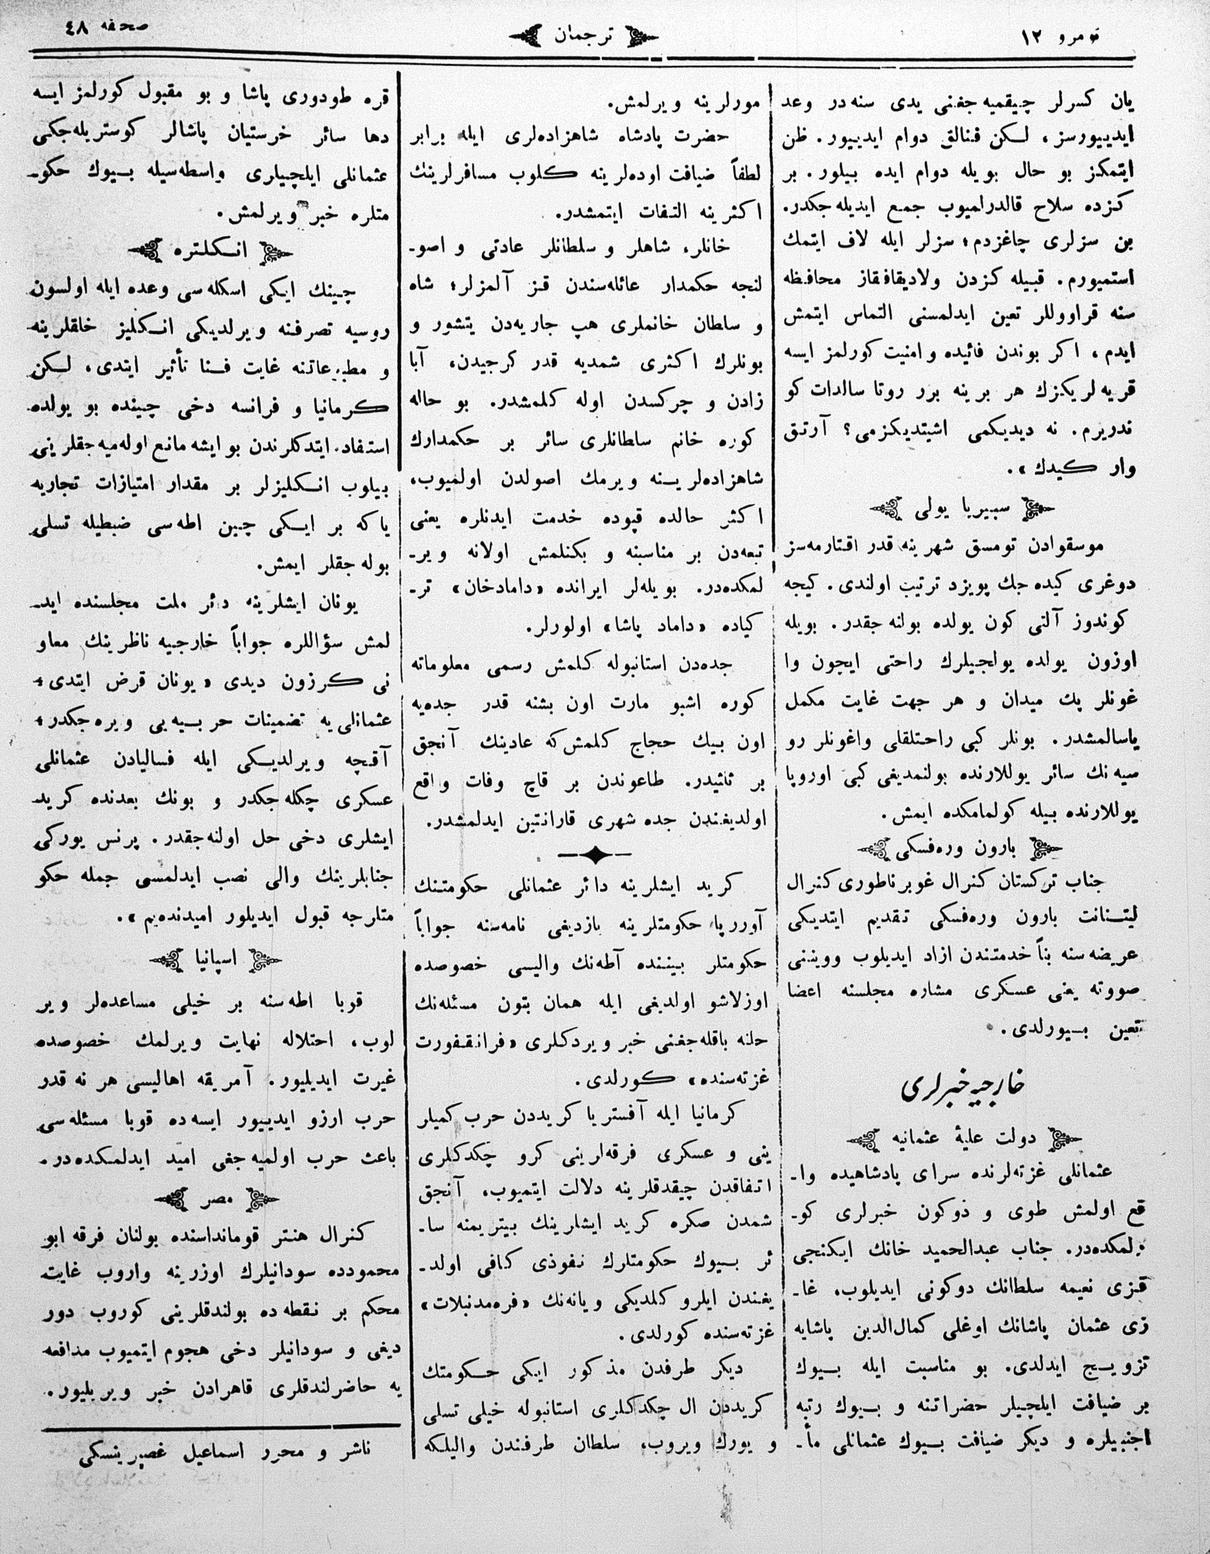 نومرو ١٢
ترجمان
صحفه ٤٨
يان كسرلر چيقميه‌جغنى يدى سنه‌در وعد
ايديیورسز، لـكن قنالق دوام ايديیور. ظن
ايتمكز بو حال بويله دوام ايده بيلور. بر
كزده سلاح قالدرلميوب جمع ايديله‌جكدر.
بن سزلرى چاغزدم؛ سزلر ايله لاف ايتمك
استميورم. قبيله كزدن ولاديقافقاز محافظه
سنه قراووللر تعين ايدلمسنى التماس ايتمش
ايدم، اكر بوندن فائيده و امنيت كورلمز ايسه
قريه‌لريكزك هر برينه برر روتا سالدات كو
ندريرم. نه ديديكمى اشيتديكزمى؟ آرتـق
وار كـيدك».
سيبيريا يولى
موسقوادن تومسق شهرينه قدر اقتارمه‌سز
دوغرى كيده جك پويزد ترتيب اولندى. كيجه
كوندوز آلتى كون يولده بولنه جقدر. بويله
اوزون يولده يولجيلرك راحتى ايچون وا
غونلر پك ميدان و هر جهت غايت مكمل
ياسالمشدر. بونلر كبى راحتلقلى واغونلر رو
سيه‌نك سائر يوللارنده بولنمديغى كبى اوروپا
يوللارنده بيله كولمامكده ايمش.
بارون وره‌فسكى
جناب تركستان كنرال غوبرناطورى كنرال
ليتـنانت بارون وره‌فسكى تقديم ايتديكى
عريضه‌سنه بناً خدمتندن ازاد ايديلوب ووينى
صووته يعنى عسكرى مشاره مجلسنه اعضا
تعين بـيورلدى.
خارجيه خبرلرى
دولت عليۀ عثمانيه
عثمانلى غزته‌لرنده سراى پادشاهيده وا-
قع اولمش طوى و دوكون خبرلرى كو-
رلمكده‌در. جناب عبدالحميد خانك ايكنجى
قيزى نعيمه سلطانك دوكونى ايديلوب، غا-
زى عثمان پاشانك اوغلى كمال‌الدين پاشايه
تزويـج ايدلدى. بو مناسبت ايله بـيوك
بر ضيافت ايلچيلر حضراتنه و بـيوك رتبه
اجنبيلره و ديكر ضيافت بـيوك عثمانلى مأ-
مورلرينه ويرلمش.
حضرت پادشاه شاهزاده‌لرى ايله برابر
لطفاً ضيافت اوده‌لرينه كـلوب مسافرلرينك
اكثرينه التفات ايتمشدر.
خانلر، شاهلر و سلطانلر عادتى و اصو-
لنجه حكمدار عائله‌سندن قـز آلمزلر؛ شاه
و سلطان خانملرى هپ جاريه‌دن يتشور و
بونلرك اكثرى شمديه قدر كرجيدن، آبا
زادن و چركسدن اوله كلمشدر. بو حاله
كوره خانم سلطانلرى سائر بر حكمدارك
شاهزاده‌لريـنه ويرمك اصولدن اولميوب،
اكثر حالده قپوده خدمت ايدنلره يعنى
تبعه‌دن بر مناسبنه و بكنلمش اولانه وير-
لمكده‌در. بويله‌لر ايرانده «دامادخان» تر-
كياده «داماد پاشا» اولورلر.
جده‌دن استانبوله كلمش رسمى معلوماته
كوره اشبو مارت اون بشنه قدر جده‌يه
اون بيك حجاج كلمش‌كه عادينك آنجق
بر ثلثيدر. طاعوندن بر قاچ وفات واقع
اولديغندن جده شهرى قارانتين ايدلمشدر.
كريد ايشلرينه دائر عثمانلى حكومتنك
آوروپا حكومتلرينه يازديغى نامه‌سنه جواباً
حكومتلر بيننده آطه‌نك واليسى خصوصده
اوزلاشو اولديغى ايله همان بتون مسئله‌نك
حلنه باقله‌جغنى خبر ويردكلرى «فرانقفورت
غزته‌سنده» كـورلدى.
كرمانيا ايله آفستريا كريددن حرب كميلر
ينى و عسكرى فرقه‌لرينى كرو چكدكلرى
اتفاقدن چيقدقلرينه دلالت ايتميوب، آنجق
شمدن صكره كريد ايشلرينك بيتريمنه سا-
ئر بـيوك حكومتلرك نفوذى كافى اولد-
يغندن ايلرو كلديكى ويانه‌نك «فره‌مدنبلات»
غزته‌سنده كورلدى.
ديكر طرفدن مذكور ايكى حـكومتك
كريددن ال چكدكلرى استانبوله خيلى تسلى
و يورك ويروب، سلطان طرفندن واليلكه
قره طودورى پاشا و بو مقبول كورلمز ايسه
دها سائر خرستيان پاشالر كوستريله‌جكى
عثمانلى ايلچيلرى واسطه‌سيله بـيوك حكو-
متلره خبر ويرلمش.
انـكلتره
چينك ايكى اسكله‌سى وعده ايله اولسون
روسيه تصرفنه ويرلديكى انـكليز خلقلرينه
و مطبوعاتنه غايت فـنا تأثير ايتدى، لـكن
كـرمانيا و فرانسه دخى چينده بو يولده
استفاده ايتدكلرندن بو ايشه مانع اوله‌ميه‌جقلرينى
بيلوب انـكليزلر بر مقدار امتيازات تجاريه
ياكه بر ايـكى چين اطه‌سى ضبطيله تسلى
بوله‌جقلر ايمش.
يونان ايشلرينه دائر ملت مجلسنده ايد-
لمش سؤاللره جواباً خارجيه ناظرينك معاو
نى كـرزون ديدى «يونان قرض ايتدى؛
عثمانلى‌يه تضمينات حربـيه‌يى ويره‌جكدر؛
آقـچه ويرلديـكى ايله فساليادن عثمانلى
عسكرى چكله‌جكدر و بونك بعدنده كريد
ايشلرى دخى حل اولنه‌جقدر. پرنس يوركى
جنابلرينك والى نصب ايدلمسى جمله حكو
متلرجه قبول ايديلور اميدنده‌يم».
اسپانيا
قوبا اطه‌سنه بر خيلى مساعده‌لر وير
لوب، احتلاله نهايت ويرلمك خصوصده
غيرت ايديليور. آمريقه اهاليسى هر نه قدر
حرب ارزو ايديیور ايسه‌ده قوبا مسئله‌سى
باعث حرب اولميه‌جغى اميد ايدلمـكده‌در.
مصر
كنرال هنتر قومانداسنده بولنان فرقه ابو
محمودده سودانيلرك اوزرينه واروب غايت
محكم بر نـقطه‌ده بولندقلرينى كوروب دور
ديغى و سودانيلر دخى هجوم ايتميوب مدافعه
يه حاضرلندقلرى قاهرادن خبر ويريليور.
ناشر و محرر اسماعيل غصپرينسكى